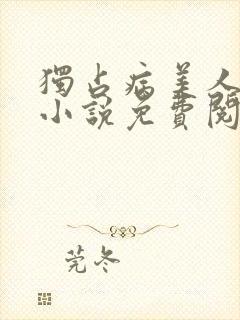 獨占病美人
小說免費閱
莞冬